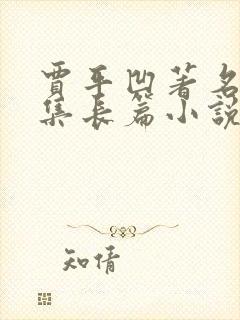 賈平凹著名
集長篇小說
知情